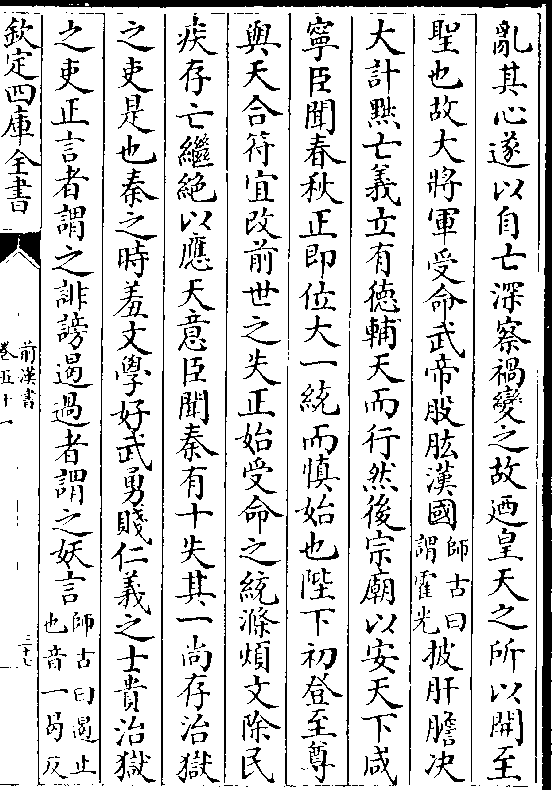 亂其心遂以自亡深察禍變之故迺皇天之所以開至
聖也故大將軍受命武帝股肱漢國師古曰謂霍光披肝膽决
大計黜亡義立有德輔天而行然後宗廟以安天下咸
寧臣聞春秋正即位大一統而慎始也陛下初登至尊
與天合符宜改前世之失正始受命之統滌煩文除民
疾存亡繼絶以應天意臣聞秦有十失其一尚存治獄
之吏是也秦之時羞文學好武勇賤仁義之士貴治獄
之吏正言者謂之誹謗遏過者謂之妖言師古曰遏止也音一曷反
欽定四庫全書
前漢書
卷五十一
三十七